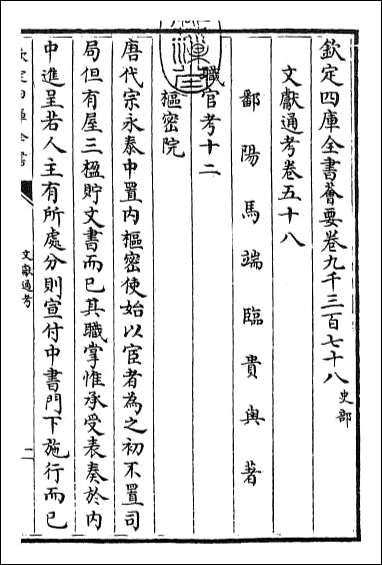 欽定四庫全書薈要卷九千三百七十八 史部
文獻通考卷五十八
鄱陽馬端臨貴與著
職官考十二
樞密院
唐代宗永泰中置内樞密使始以宦者為之初不置司
局但有屋三楹貯文書而已其職掌惟承受表奏於内
中進呈若人主有所處分則宣付中書門下施行而已
文獻通考